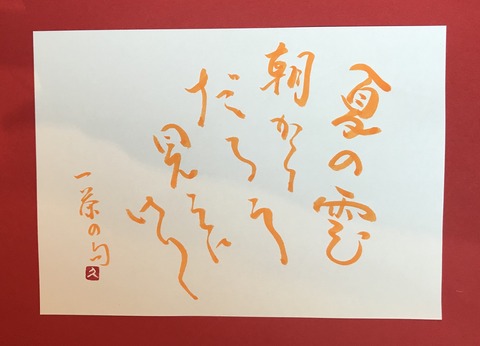 夏の雲
朝から
だるう
見えに
けり
一茶の句
久